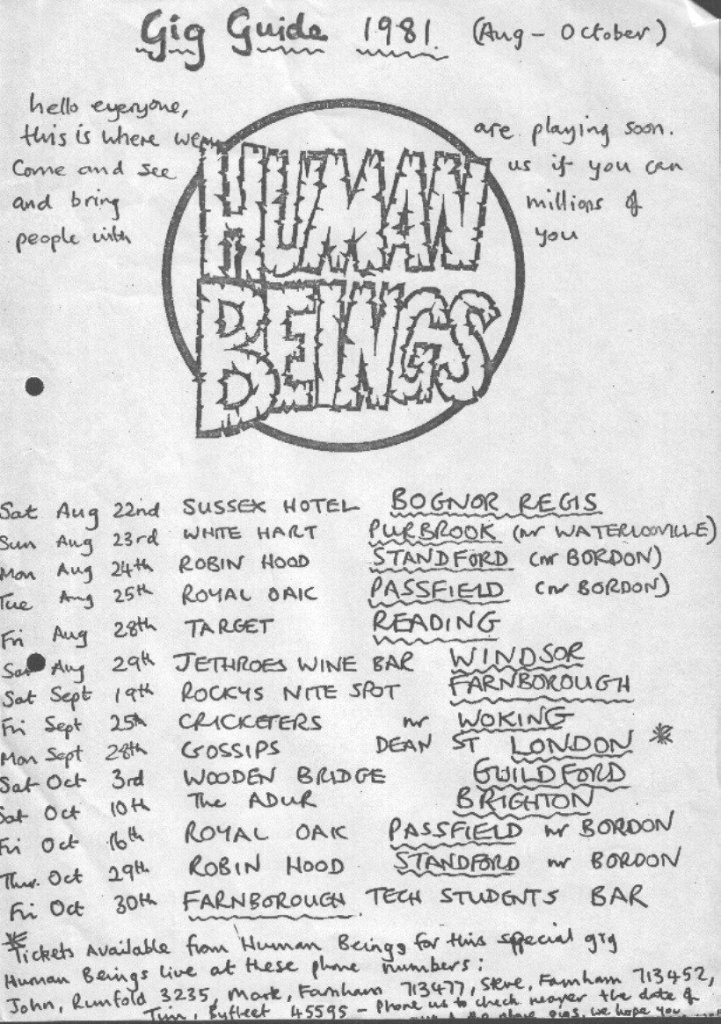 Gig Guide 1981. (Aug - October)
hello everyone,
this is where we are playing soon.
Come and see us if you can
and bring millions of
people with you
HUMAN
BEINGS
Sat Aug 22nd SUSSEX HOTEL BOGNOR REGIS
Sun Aug 23rd WHITE HART PURBROOK (nr WATERLOOVILLE)
Mon Aug 24th ROBIN HOOD STANDFORD (nr BORDON)
Tue Aug 25th ROYAL OAK PASSFIELD (nr BORDON)
Fri Aug 28th TARGET READING
Sat Aug 29th JETHROES WINE BAR WINDSOR
Sat Sept 19th ROCKYS NITE SPOT FARNBOROUGH
Fri Sept 25th CRICKETERS nr WOKING
Mon Sept 28th GOSSIPS DEAN ST LONDON *
Sat Oct 3rd WOODEN BRIDGE GUILDFORD
Sat Oct 10th The ADUR BRIGHTON
Fri Oct 16th ROYAL OAK PASSFIELD nr BORDON
Thur. Oct 29th ROBIN HOOD STANDFORD nr BORDON
Fri Oct 30th FARNBOROUGH TECH STUDENTS BAR
* Tickets Available from Human Beings for this special gig
Human Beings live at these phone numbers:
John, Runfold 3235, Mark, Farnham 713477, Steve, Farnham 713452,
Tim, Byfleet 45595 - Phone us to check nearer the date of
the above gigs, we hope you